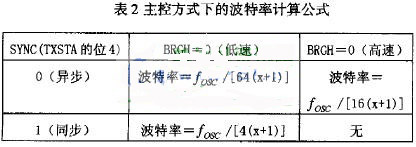 表2 主控方式下的波特率计算公式
SYNC(TXSTA的位4) BRGH=0（低速） BRGH=0（高速）
0（异步） 波特率=fOSC /[64(x+1)] 波特率=
fOSC /[16(x+1)]
1（同步） 波特率=fOSC /[4(x+1)] 无